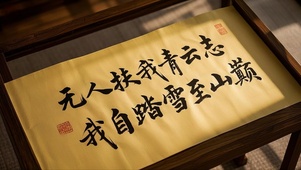 无人扶我青云志
我自踏雪至山巅